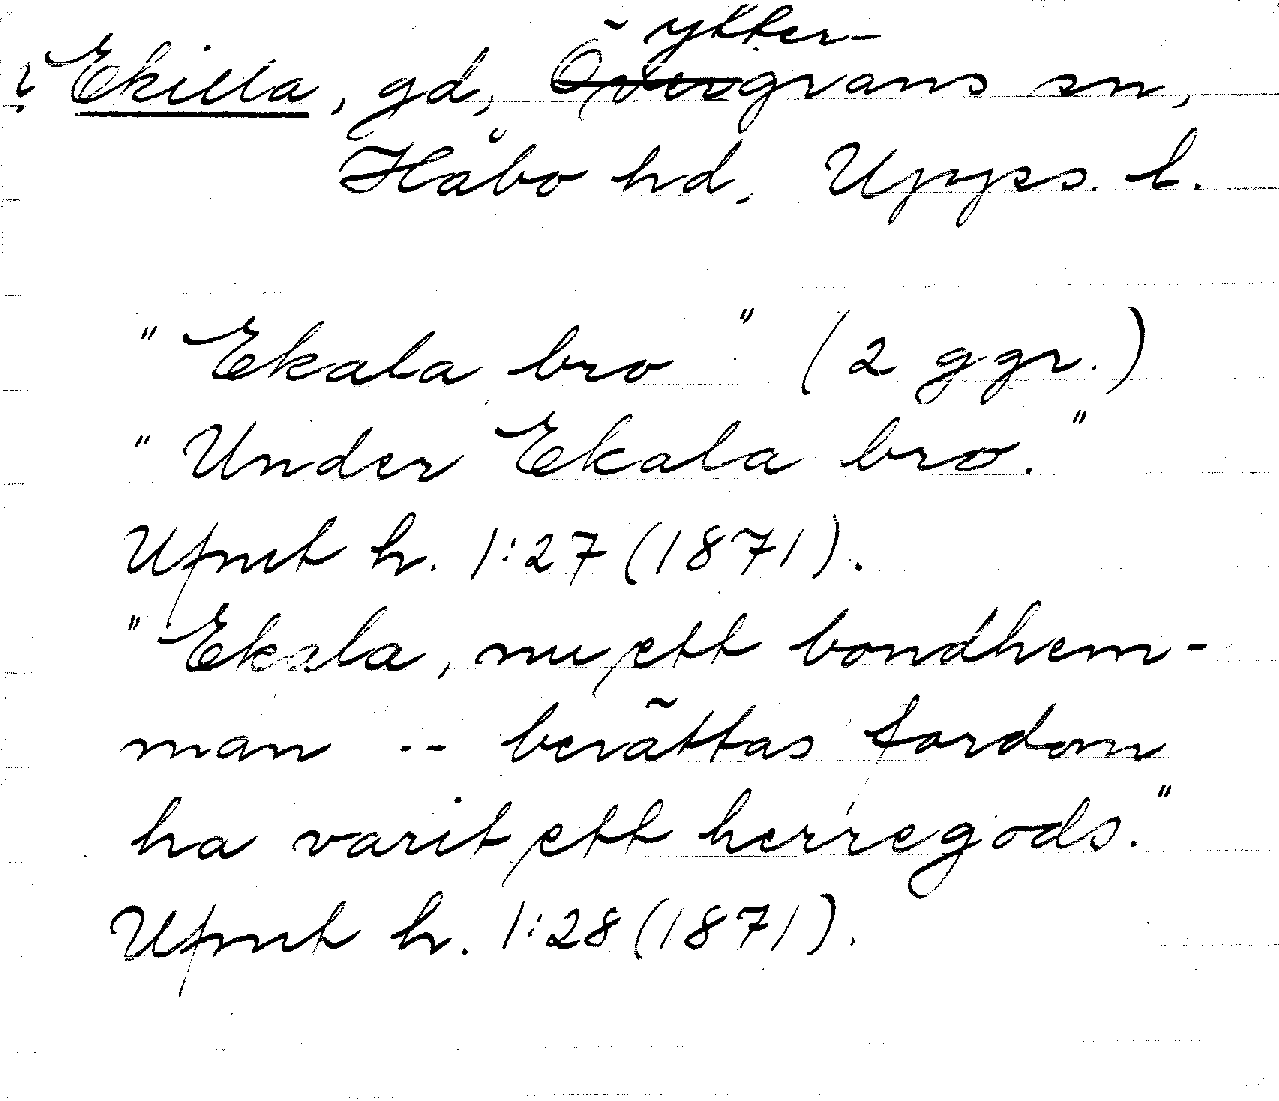 ? Ekilla, gd, Övergrans sn,
ytter-
Håbo hd, Upps. l.
"Ekala bro" (2 ggr.)
"Under Ekala bro."
Ufmt h. 1:27 (1871).
"Ekala, nu ett bondhem-
man -- berättas fordom
ha varit ett herregods."
Ufmt h. 1:28 (1871).